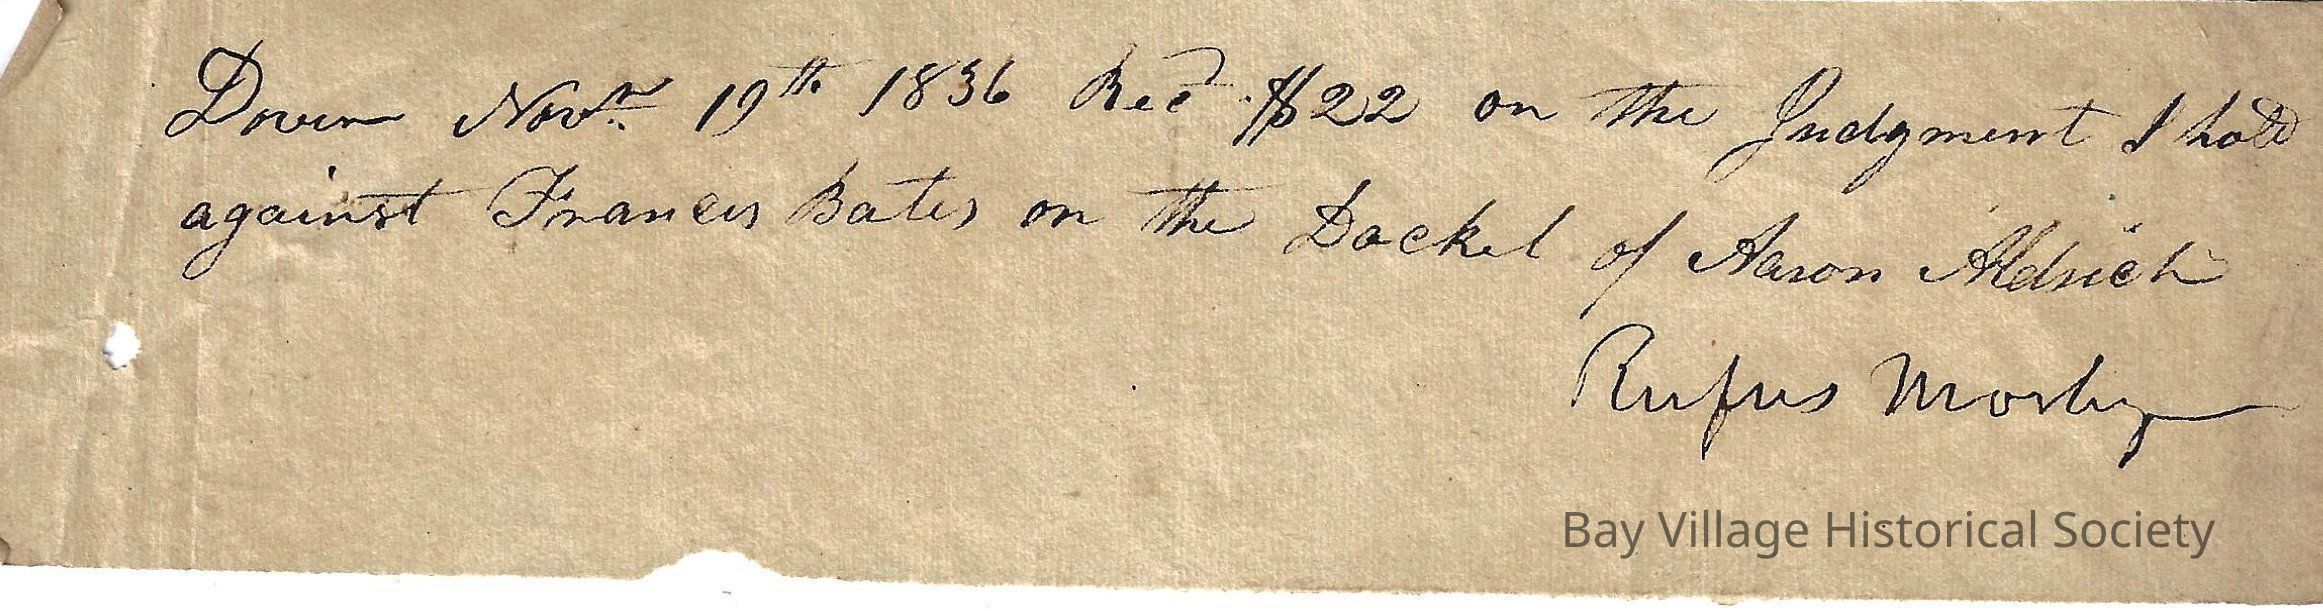 Dover Novr. 19th 1836 Recd $22 on the Judgment I hold
against Francis Bates on the Docket of Aaron Aldrich
Rufus Mosley
Bay Village Historical Society